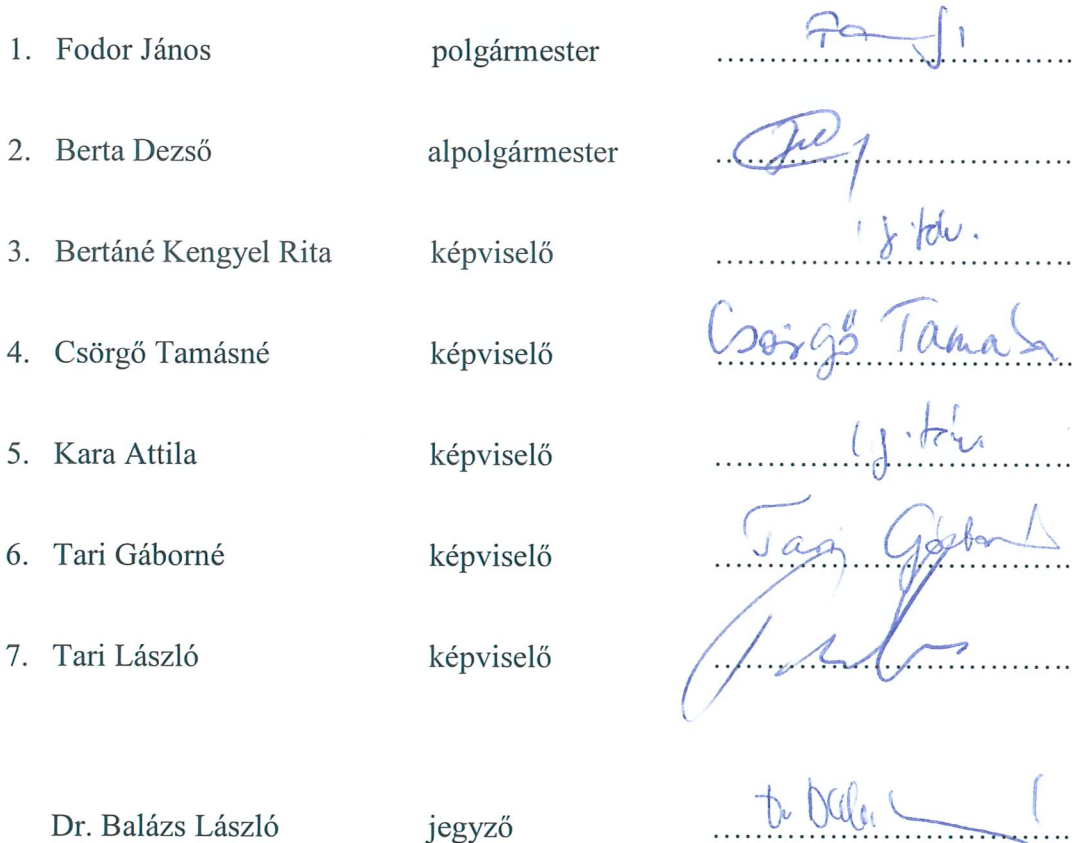 1. Fodor János polgármester
2. Berta Dezső alpolgármester
3. Bertáné Kengyel Rita képviselő
4. Csörgő Tamásné képviselő Csörgő Tamásné
5. Kara Attila képviselő
6. Tari Gáborné képviselő Tari Gáborné
7. Tari László képviselő
Dr. Balázs László jegyző